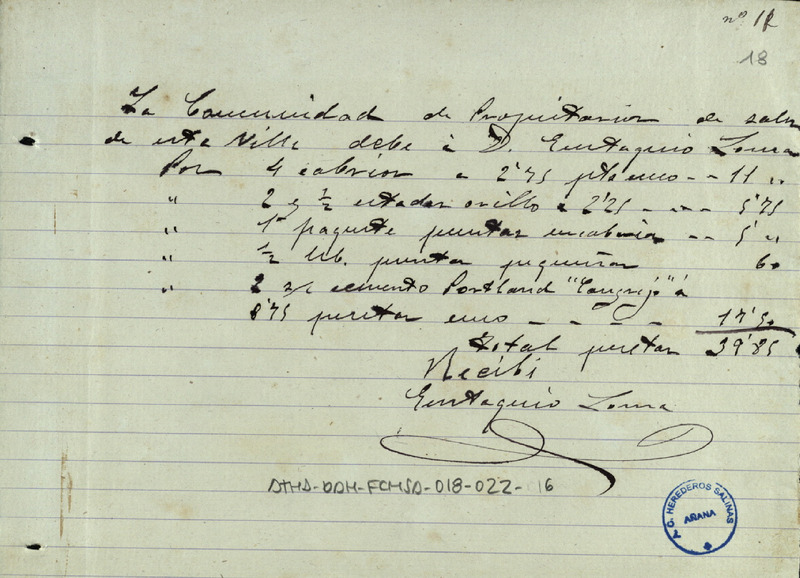 nº 12
18
La Comunidad de Propietarios de salin
de esta Villa debe á D. Eustaquio Loma
Por 4 cabrios a 2'75 pts uno -- 11 "
" 2 y ½ estados orillo a 2'25 - -- 5'75
" 1 paquete puntas encabria -- 5 "
" ½ lib. puntas pequeñas 60
" 2 s/c cemento Portland "Cangrejo" á
8'75 pesetas uno - - - - 17'50
Total pesetas 39'85
Recibi
Eustaquio Loma
ATHA-DAH-FCHSA-018-022-16
C. HEREDEROS SALINAS
AÑANA